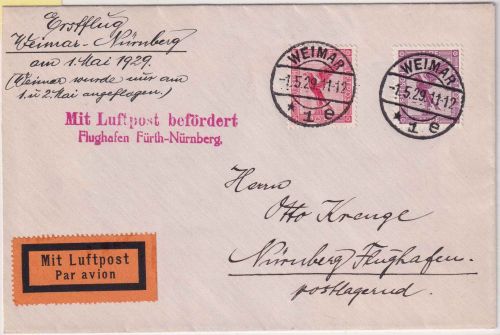 Erstflug
Weimar-Nürnberg
am 1. Mai 1929.
(Weimar wurde nur am
1. u. 2. Mai angeflogen.)
Mit Luftpost befördert
Flughafen Fürth-Nürnberg.
WEIMAR
-1.5.29.11-12
* 1 e
WEIMAR
-1.5.29.11-12
* 1 e
Herrn
Otto Krenge
Nürnberg Flughafen.
postlagernd
Mit Luftpost
Par avion